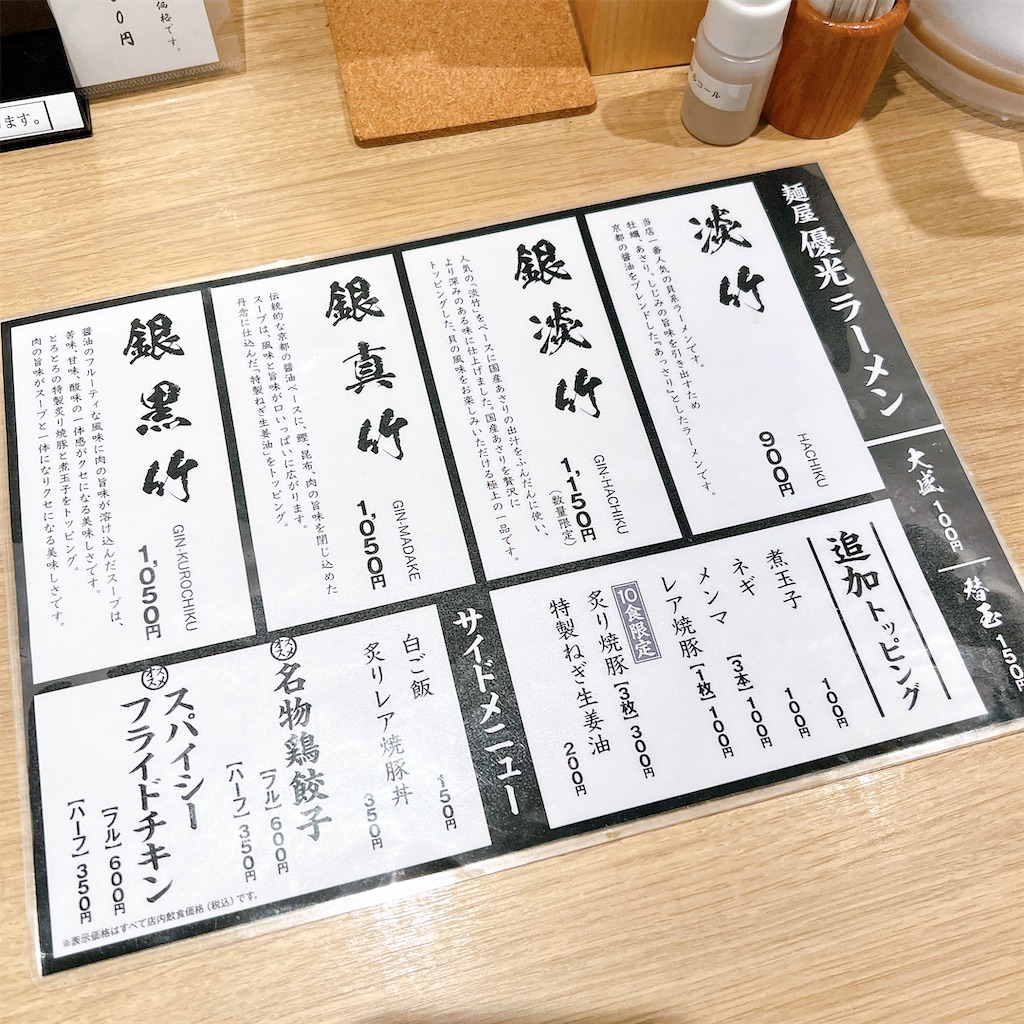 麺屋 優光 ラーメン
大盛 100円
替玉 150円
淡竹
HACHIKU
900円
当店一番人気の貝系ラーメンです。
牡蠣、あさり、しじみの旨味を引き出すため
京都の醤油をブレンドした『あっさり』としたラーメンです。
銀淡竹
GIN-HACHIKU
1,150円
(数量限定)
人気の「淡竹」をベースに国産あさりの出汁をふんだんに使い、
より深みのある味に仕上げました。国産あさりを贅沢に
トッピングした、貝の風味をお楽しみいただける極上の一品です。
銀真竹
GIN-MADAKE
1,050円
伝統的な京都の醤油ベースに、鰹、昆布、肉の旨味を閉じ込めた
スープは、風味と旨味が口いっぱいに広がります。
丹念に仕込んだ「特製ねぎ生姜油」をトッピング。
銀黒竹
GIN-KUROCHIKU
1,050円
醤油のフルーティな風味に肉の旨味が溶け込んだスープは、
苦味、甘味、酸味の一体感がクセになる美味しさです。
とろとろの特製炙り焼豚と煮玉子をトッピング。
肉の旨味がスープと一体になりクセになる美味しさです。
追加トッピング
煮玉子 100円
ネギ 100円
メンマ [3本] 100円
レア焼豚 [1枚] 100円
10食限定
炙り焼豚 [3枚] 300円
特製ねぎ生姜油 200円
サイドメニュー
白ご飯 150円
炙りレア焼豚丼 350円
オススメ
名物鶏餃子
[フル] 600円
[ハーフ] 350円
オススメ
スパイシー
フライドチキン
[フル] 600円
[ハーフ] 350円
※表示価格はすべて店内飲食価格(税込)です。
価格です。
0円
ます。
ルコール